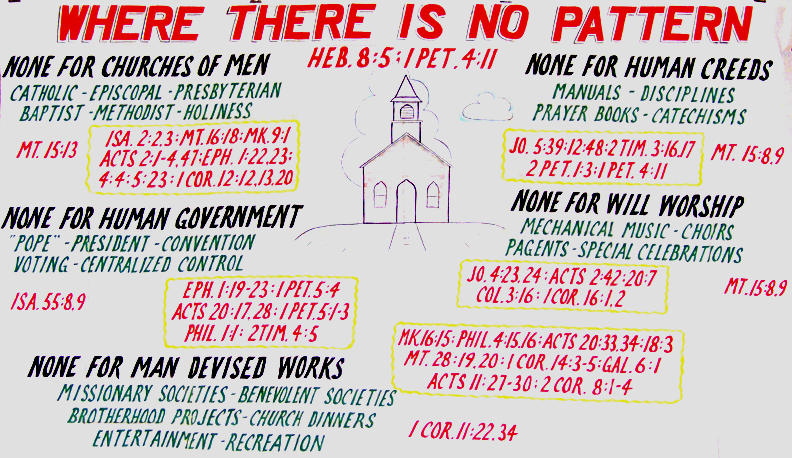 WHERE THERE IS NO PATTERN
HEB. 8:5:1 PET. 4:11
NONE FOR CHURCHES OF MEN
CATHOLIC - EPISCOPAL - PRESBYTERIAN
BAPTIST - METHODIST - HOLINESS
MT. 15:13
ISA. 2:2,3: MT. 16:18: MK. 9:1
ACTS 2:1-4,47: EPH. 1:22,23:
4:4: 5:23: 1 COR. 12:12,13,20
NONE FOR HUMAN CREEDS
MANUALS - DISCIPLINES
PRAYER BOOKS - CATECHISMS
JO. 5:39: 12:48: 2 TIM. 3:16,17
2 PET. 1:3: 1 PET. 4:11
MT. 15:8,9
NONE FOR HUMAN GOVERNMENT
"POPE" - PRESIDENT - CONVENTION
VOTING - CENTRALIZED CONTROL
ISA. 55:8,9
EPH. 1:19-23: 1 PET. 5:4
ACTS 20:17,28: 1 PET. 5:1-3
PHIL. 1:1: 2 TIM. 4:5
NONE FOR WILL WORSHIP
MECHANICAL MUSIC - CHOIRS
PAGENTS - SPECIAL CELEBRATIONS
JO. 4:23,24: ACTS 2:42: 20:7
COL. 3:16: 1 COR. 16:1,2
MT. 15:8,9
NONE FOR MAN DEVISED WORKS
MISSIONARY SOCIETIES - BENEVOLENT SOCIETIES
BROTHERHOOD PROJECTS - CHURCH DINNERS
ENTERTAINMENT - RECREATION
MK. 16:15: PHIL. 4:15,16: ACTS 20:33,34: 18:3
MT. 28:19,20: 1 COR. 14:3-5: GAL. 6:1
ACTS 11:27-30: 2 COR. 8:1-4
1 COR. 11:22,34